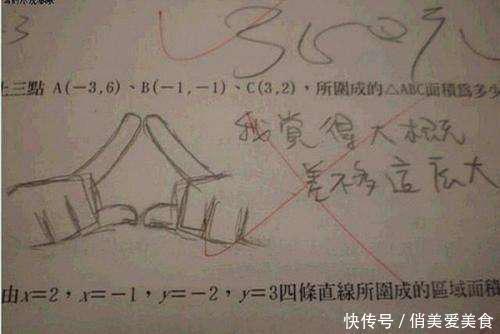 -3
上三點 A(-3,6)、B(-1,-1)、C(3,2),所圍成的△ABC面積為多少
我覺得大概
差不多這麼大
由x=2,x=-1,y=-2,y=3四條直線所圍成的區域面積
快传号/俏美爱美食